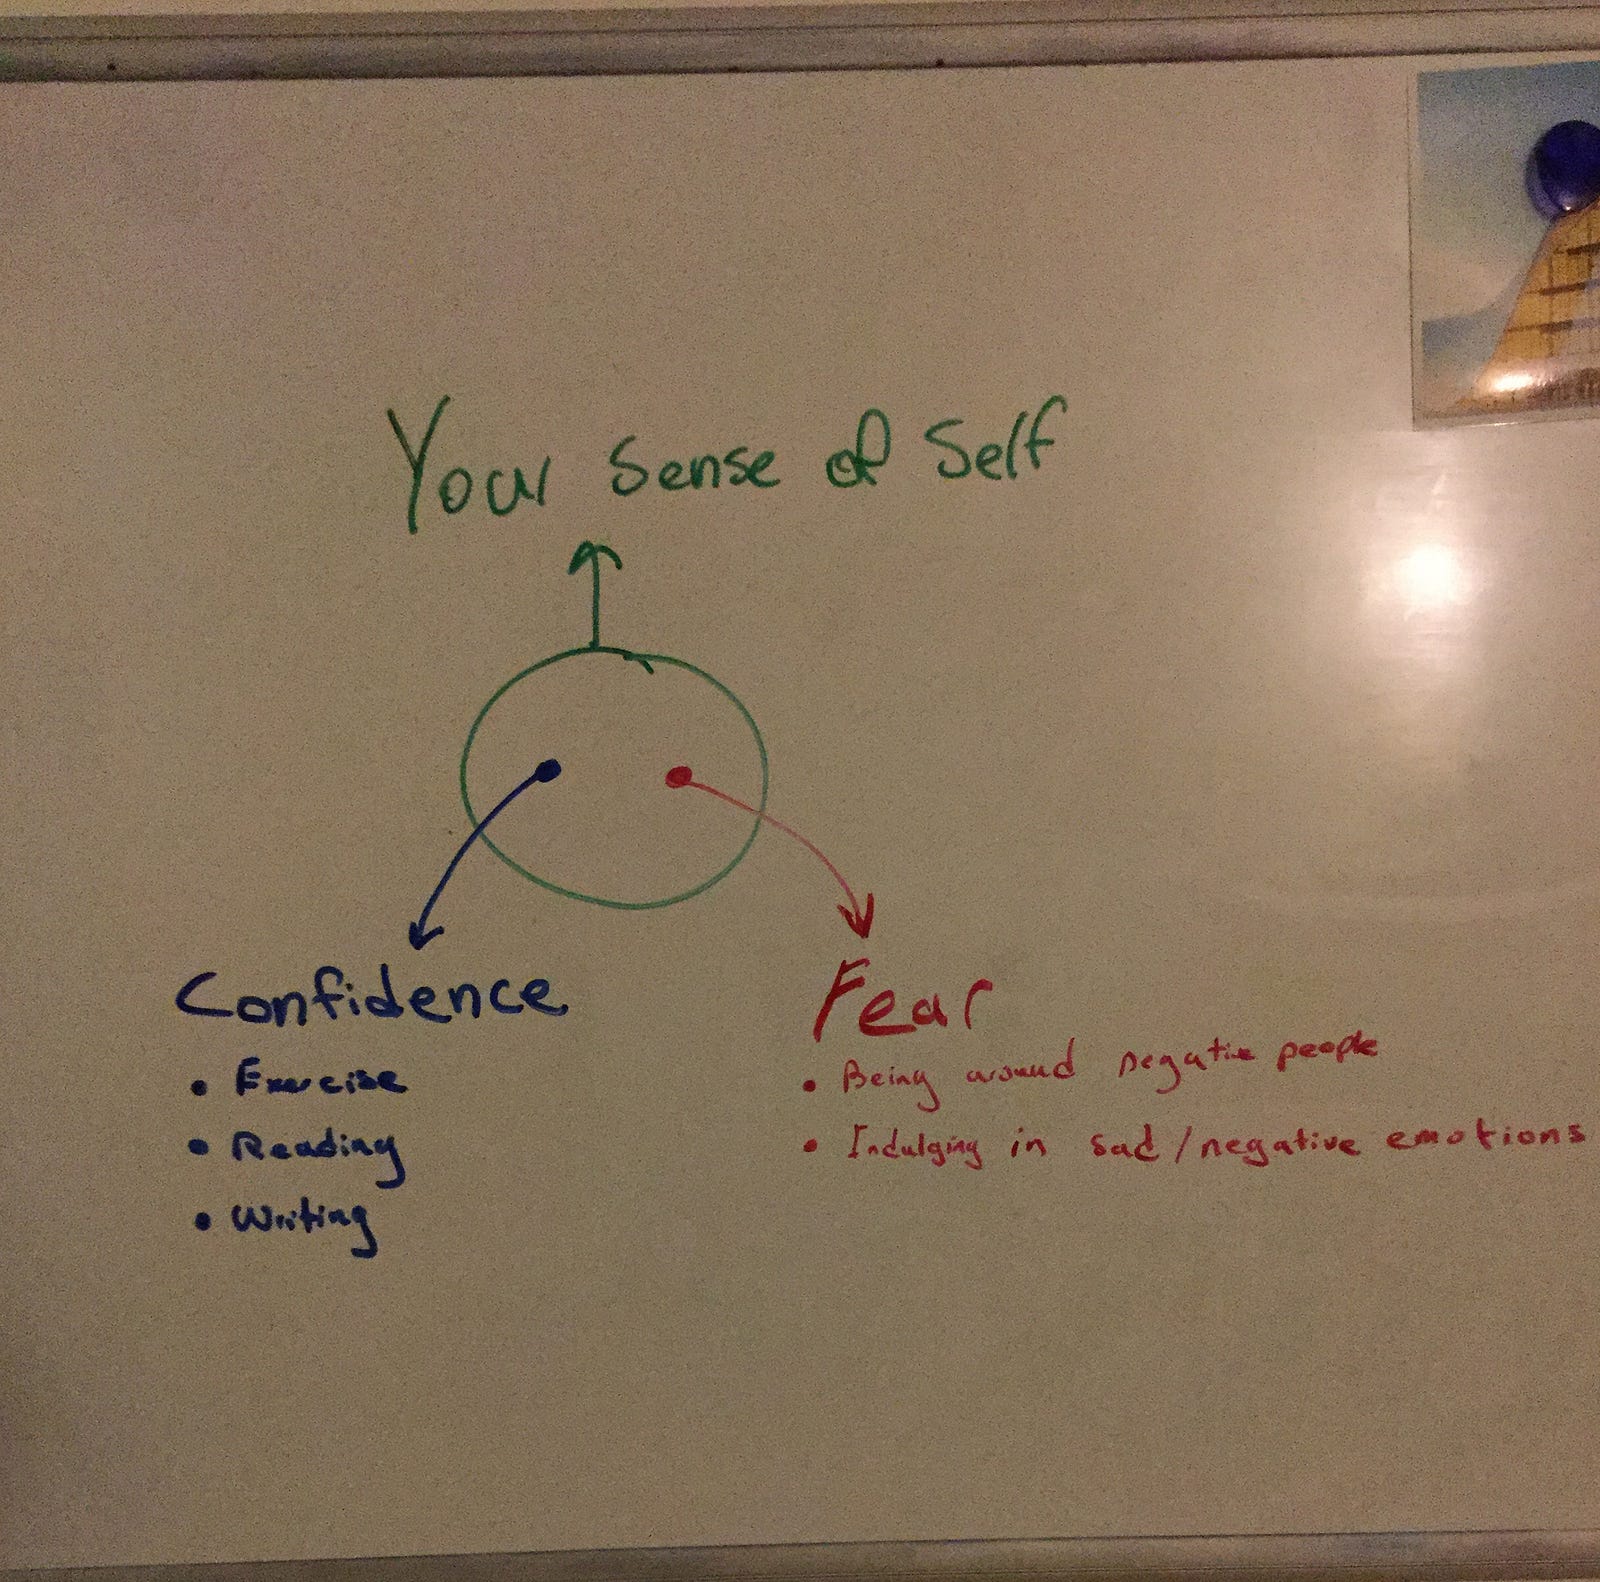 Your Sense of Self
Confidence
• Exercise
• Reading
• Writing
Fear
• Being around negative people
• Indulging in sad/negative emotions